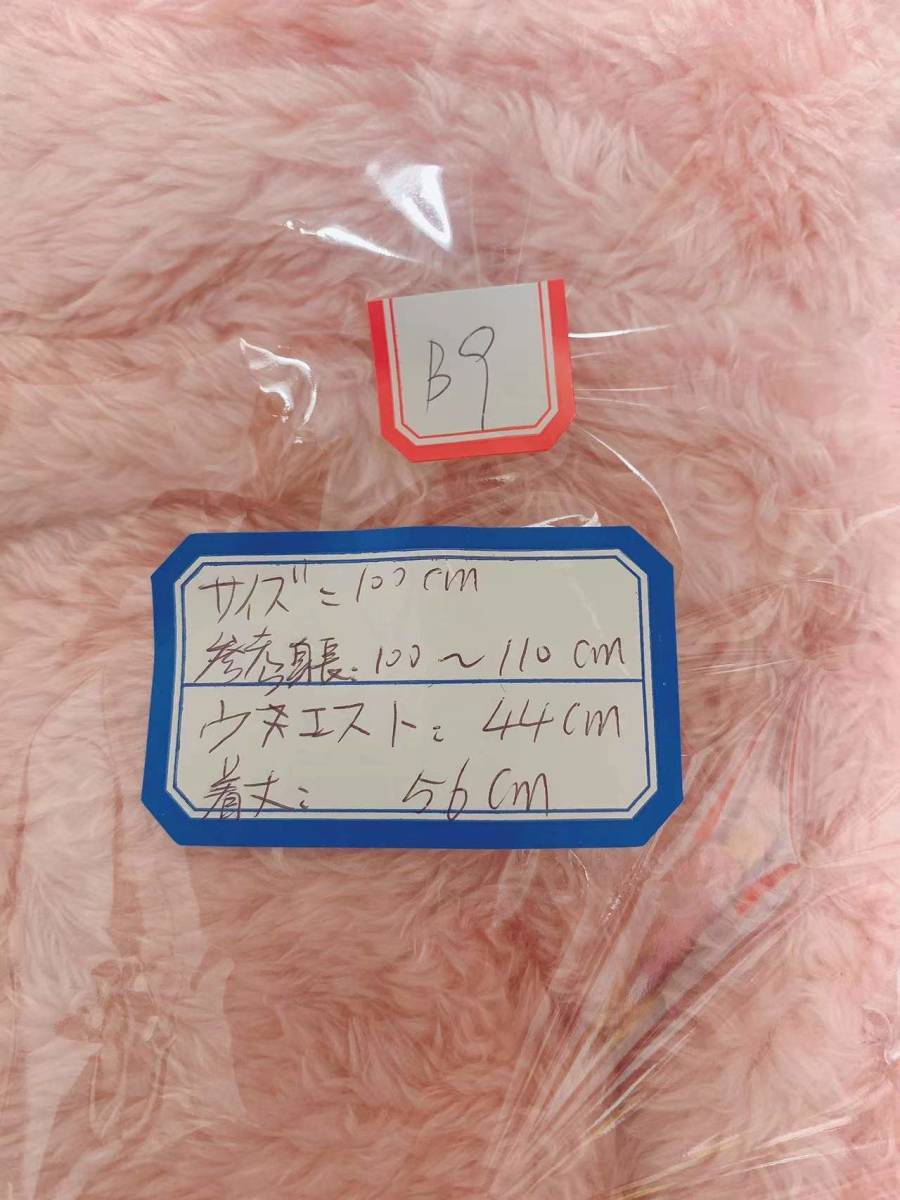 B9
サイズ：100cm
参考身長：100～110cm
ウエスト：44cm
着丈：56cm